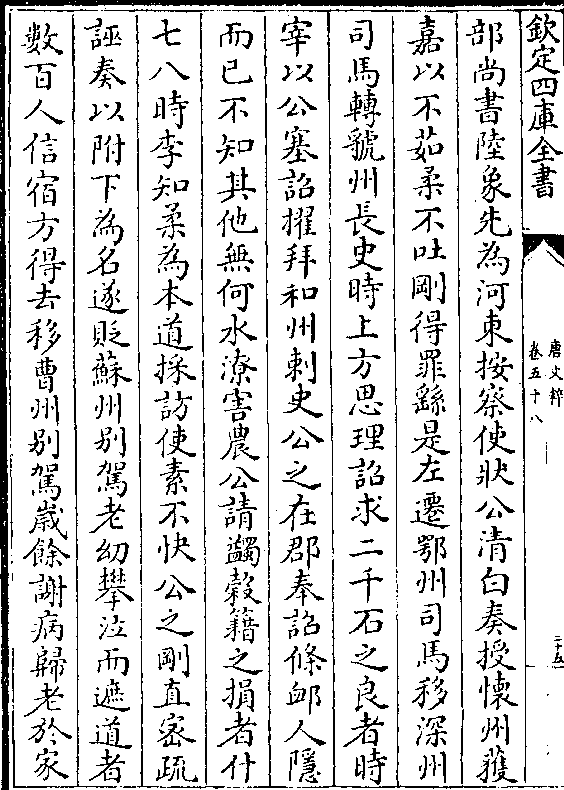 欽定四庫全書
唐文粹
卷五十八
二十五
部尚書陸象先為河東按察使狀公清白奏授懷州獲
嘉以不茹柔不吐剛得罪繇是左遷鄂州司馬移深州
司馬轉虢州長史時上方思理詔求二千石之良者時
宰以公塞詔擢拜和州刺史公之在郡奉詔條䘏人隱
而已不知其他無何水潦害農公請蠲穀籍之損者什
七八時李知柔為本道採訪使素不快公之剛直密疏
誣奏以附下為名遂貶蘇州别駕老㓜攀泣而遮道者
數百人信宿方得去移曹州别駕歲餘謝病歸老於家